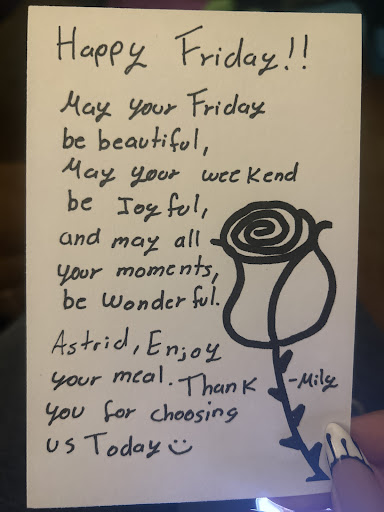 Happy Friday!!
May your Friday
be beautiful,
May your weekend
be Joyful,
and may all
your moments,
be wonderful.
Astrid, Enjoy
your meal. Thank
you for choosing
us Today
-Mily